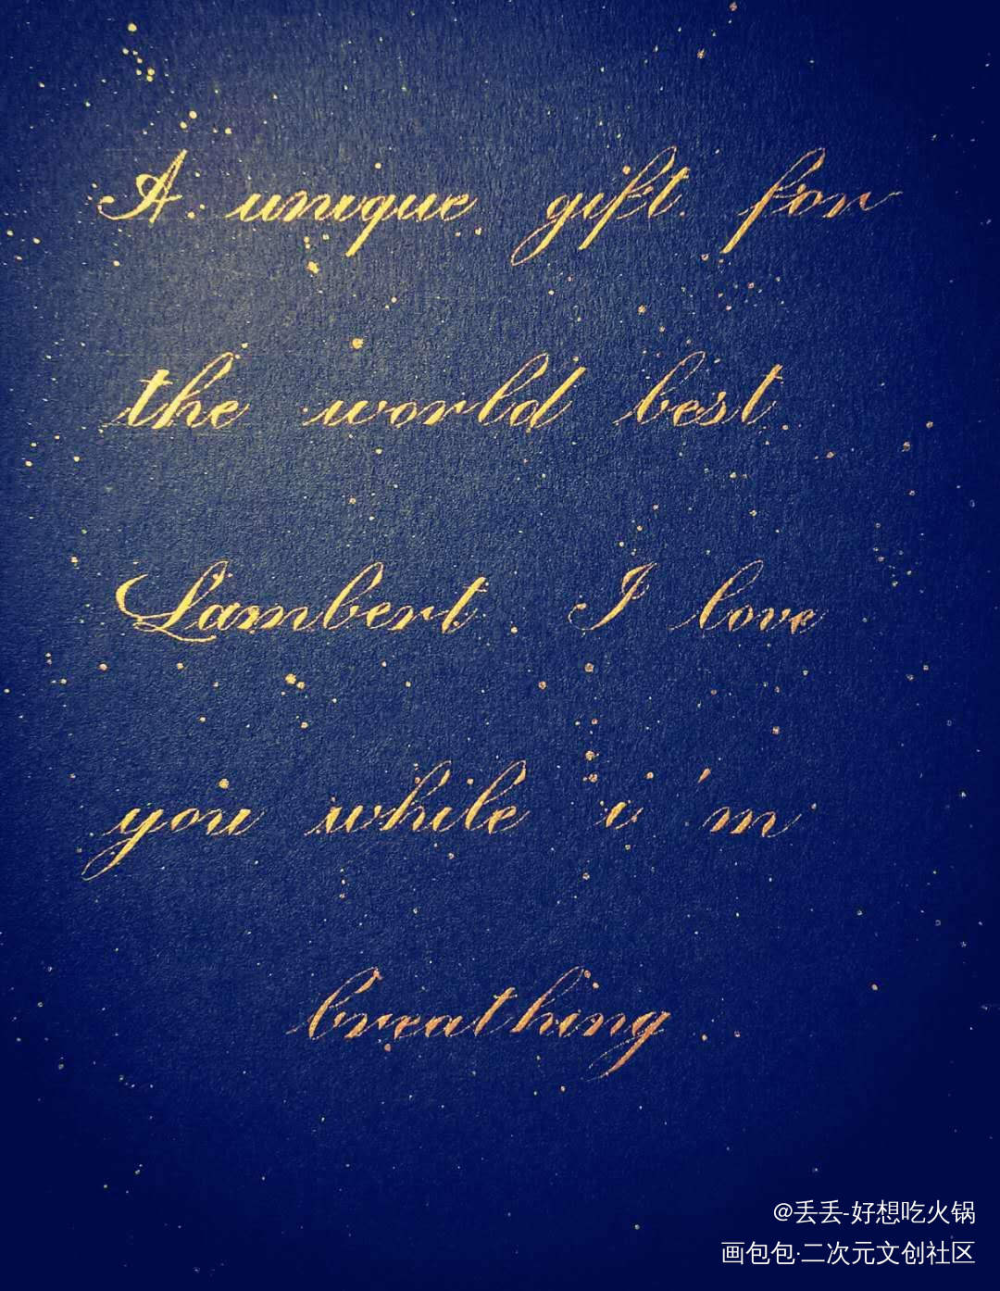 A unique gift for
the world best
Lambert I love
you while i'm
breathing
@丢丢-好想吃火锅
画包包·二次元文创社区